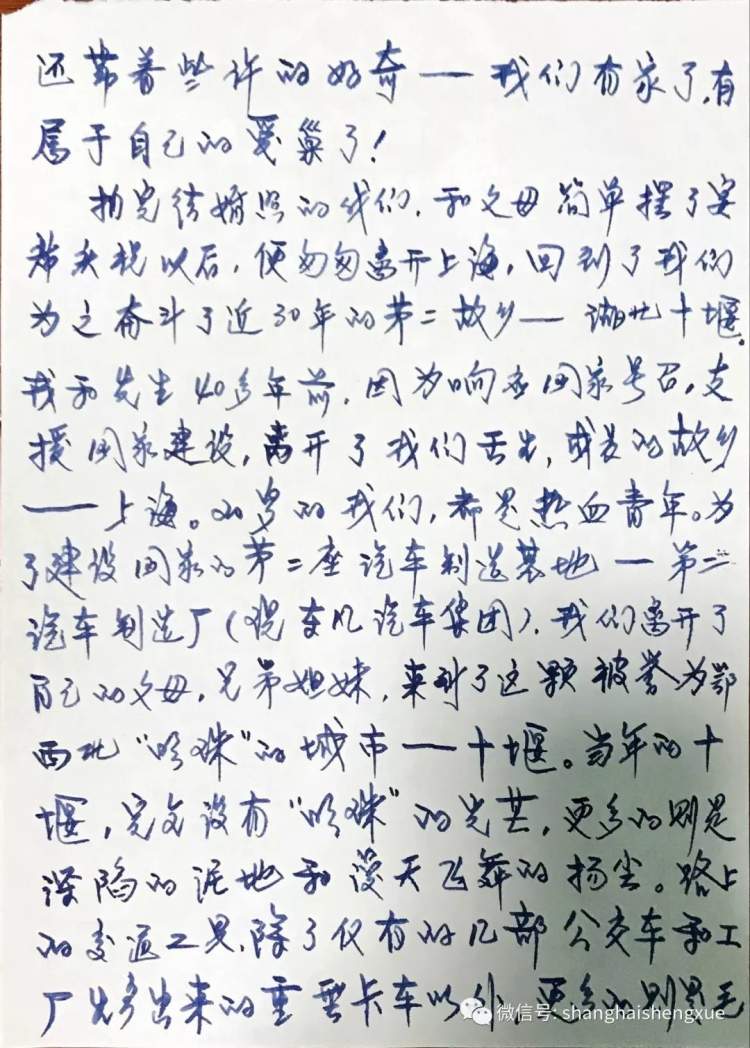 还带着些许的好奇——我们有家了,有
属于自己的爱巢了!
拍完结婚照的我们,和父母简单摆了宴
席庆祝以后,便匆匆离开上海,回到了我们
为之奋斗了近30年的第二故乡——湖北十堰.
我和先生40多年前,因为响应国家号召,支
援国家建设,离开了我们出生,成长的故乡
——上海。20岁的我们,都是热血青年。为
了建设国家的第二座汽车制造基地—第二
汽车制造厂(现东风汽车集团),我们离开了
自己的父母,兄弟姐妹,来到了这颗被誉为鄂
西北“明珠”的城市——十堰。当年的十
堰,完全没有“明珠”的光芒,更多的则是
深陷的泥地和漫天飞舞的扬尘。路上
的交通工具,除了仅有的几部公交车和工
厂生产出来的重型卡车以外,更多的则是毛
微信号: shanghaishengxue